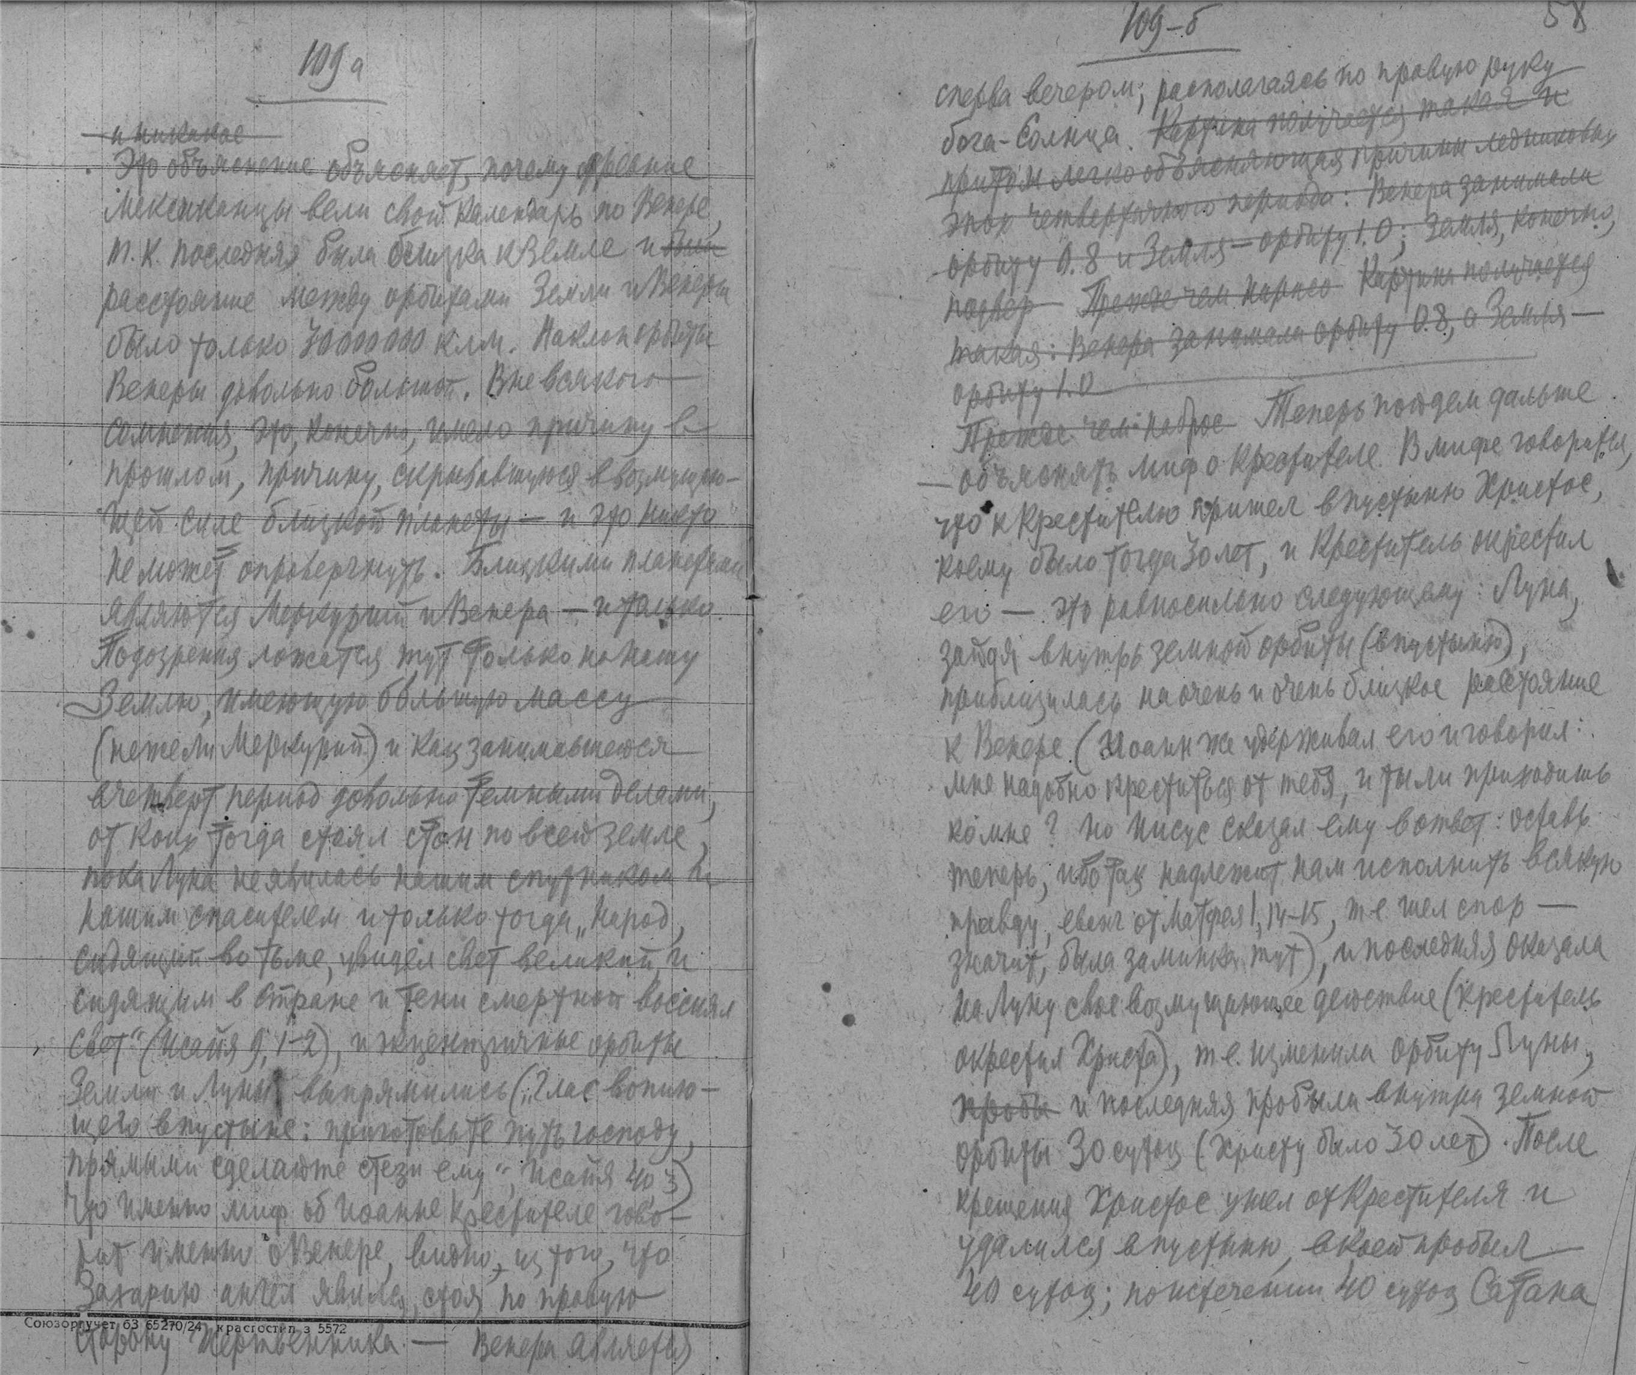 109 а
и никакое
Это объяснение объясняет, почему древние
Мексиканцы вели свой календарь по Венере,
т.к. последняя была близка к Земле и был
расстояние между орбитами Земли и Венеры
было только 30 000 000 клм. Наклон орбиты
Венеры довольно большой. Вне всякого
сомнения, это, конечно, имело причину в
прошлом, причину, скрывавшуюся в возмущаю-
щей силе близкой планеты — и это никто
не может опровергнуть. Близкими планетами
являются Меркурий и Венера — и только.
Подозрения ложатся тут только на нашу
Землю, имеющую большую массу
(нежели Меркурий) и как занимавшеюся
в четверт период довольно темными делами,
от коих тогда стоял стон по всей земле,
пока Луна не явилась нашим спутником и
нашим спасителем и только тогда „Народ,
сидящий во тьме, увидел свет великий, и
сидящим в стране и тени смертной воссиял
свет“ (Исайя 9, 1-2), и эксцентричные орбиты
Земли и Луны выпрямились („Глас вопию-
щего в пустыне: приготовьте путь господу,
прямыми сделайте стези ему“, Исайя 40 3)
Что именно миф об Иоанне Крестителе гово-
рит именно о Венере, видно из того, что
Захарию ангел явился, стоя по правую
Союзоргучет 63 65270/24 красгостип з 5572
сторону жертвенника — Венера является
109-б
58
сперва вечером; располагаясь по правую руку
бога-Солнца. Картина получается такая и
притом легко объясняющая причины ледниковых
эпох четвертичного периода: Венера занимала
орбиту 0.8 и Земля — орбиту 1.0; Земля, конечно,
подвер Прежде чем Картина получается
такая: Венера занимала орбиту 0.8, а Земля —
орбиту 1.0
Прежде чем Теперь пойдем дальше
— объяснять миф о Крестителе. В мифе говорится,
что к Крестителю пришел в пустыню Христос,
коему было тогда 30 лет, и Креститель окрестил
его — это равносильно следующему: Луна,
зайдя внутрь земной орбиты (в пустыню),
приблизилась на очень и очень близкое расстояние
к Венере (Иоанн же удерживал его и говорил:
мне надобно креститься от тебя, и ты ли приходишь
ко мне? Но Иисус сказал ему в ответ: оставь
теперь, ибо так надлежит нам исполнить всякую
правду, еванг от Матфея 1, 14-15, т.е. шел спор —
значит, была заминка тут), и последняя оказала
на Луну свое возмущающее действие (Креститель
окрестил Христа), т.е. изменила орбиту Луны,
пробы и последняя пробыла внутри земной
орбиты 30 суток (Христу было 30 лет). После
крещения Христос ушел от Крестителя и
удалился в пустыню, в коей пробыл
40 суток; по истечении 40 суток Сатана